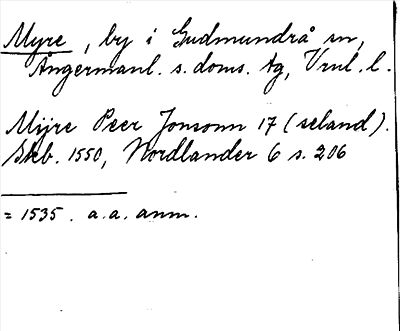 Myre, by i Gudmundrå sn,
Ångermanl. s. doms. tg, Vrnl. l.
Mÿre Peer Jonsonn 17 (seland).
Skb. 1550, Nordlander 6 s. 206
= 1535. a.a. anm.